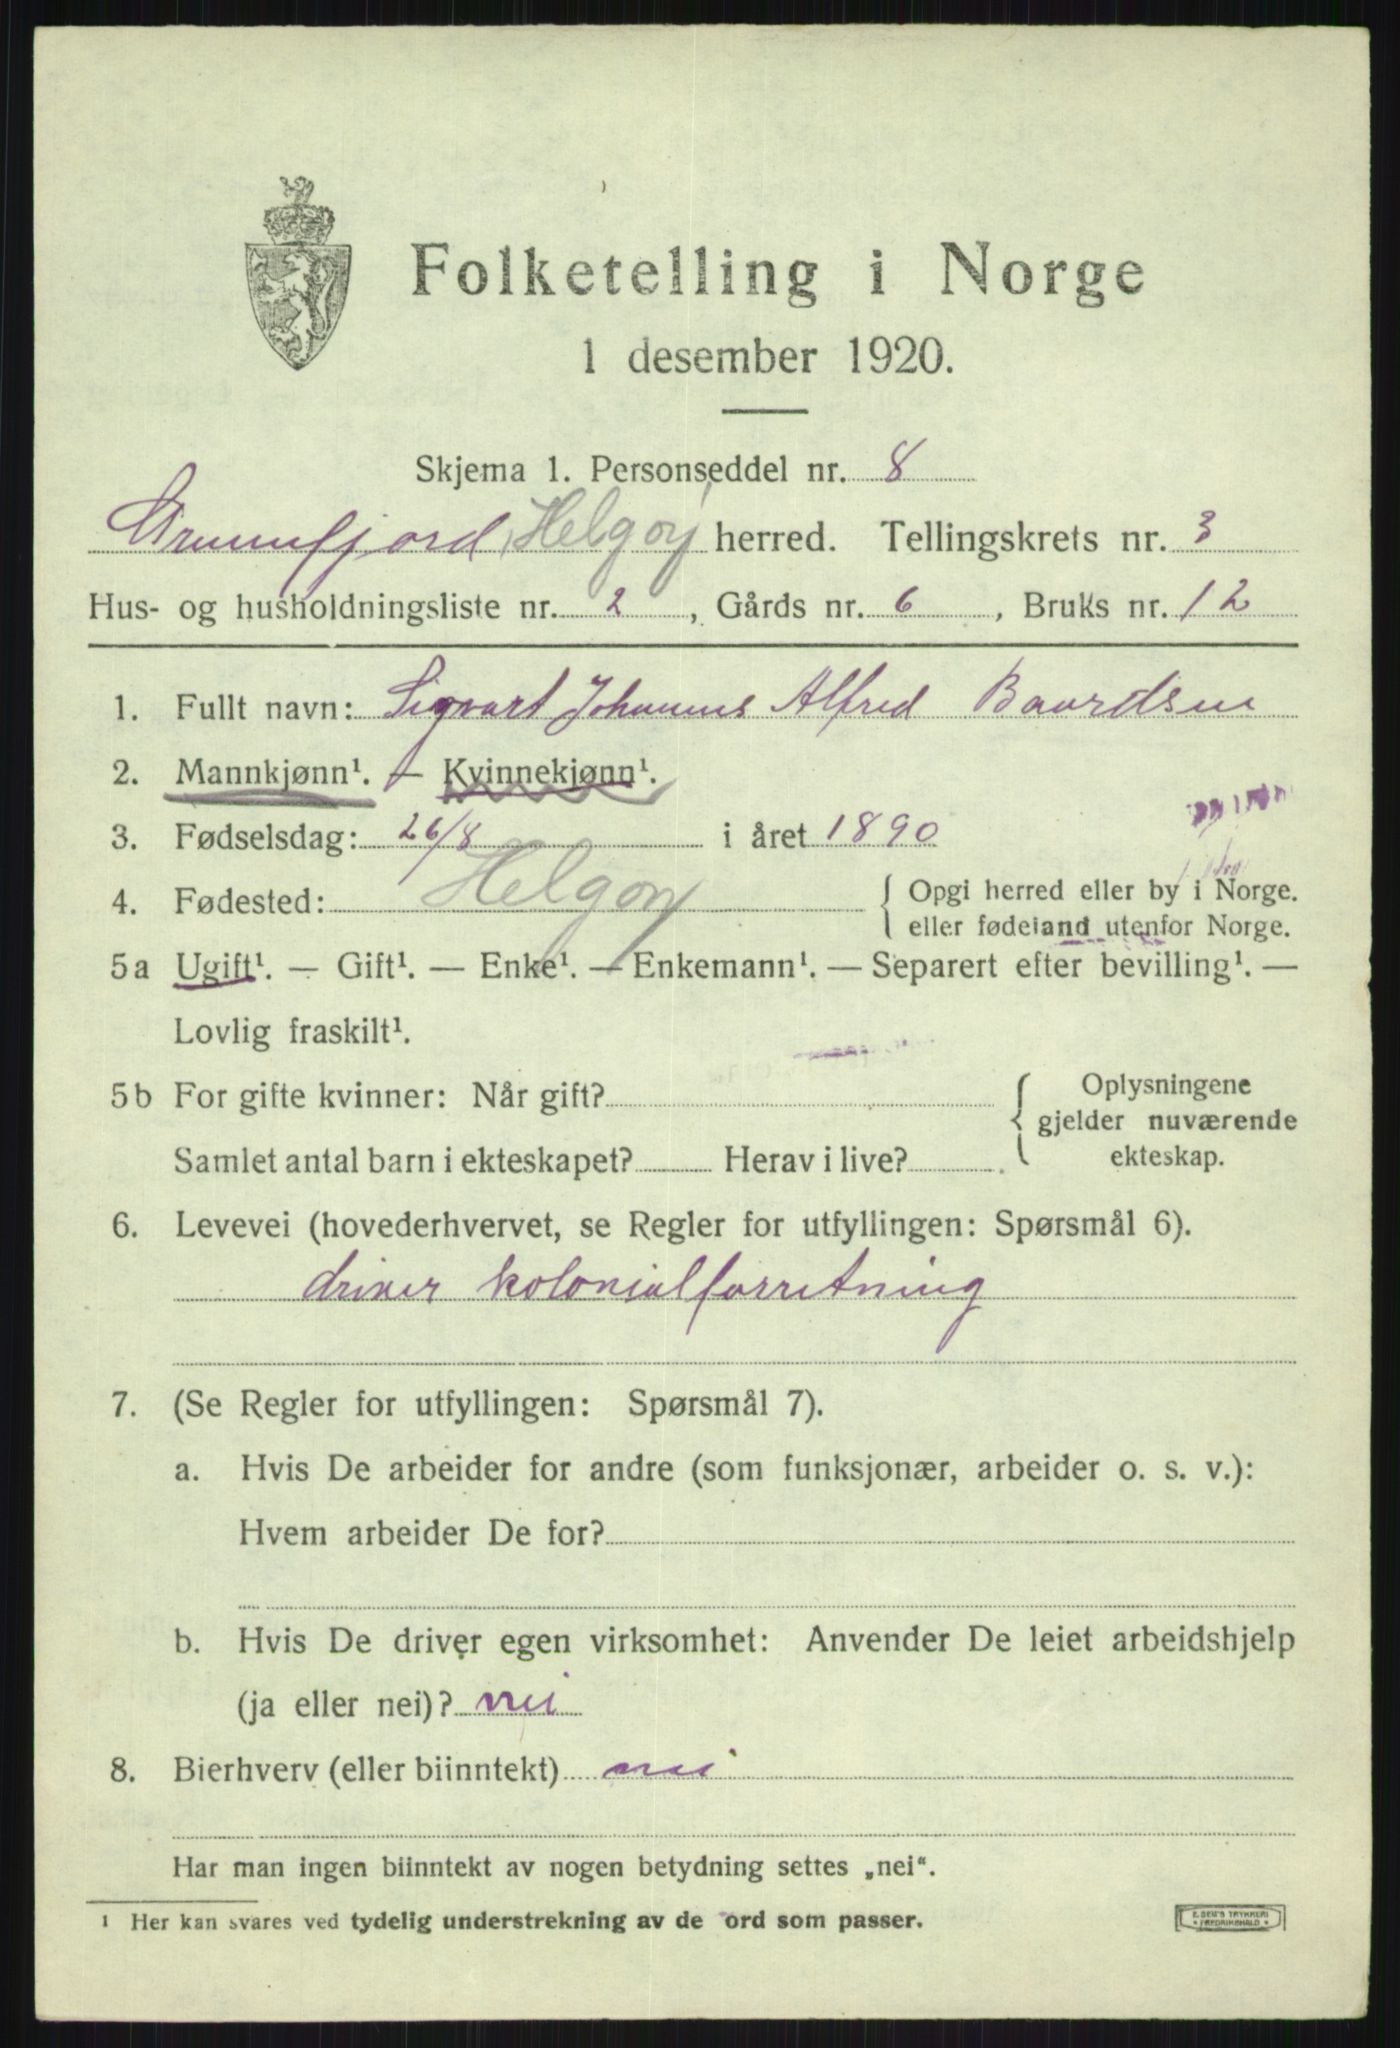 Folketelling i Norge
1 desember 1920.
Skjema 1. Personseddel nr. 8
Helgøy herred. Tellingskrets nr. 3
Hus- og husholdningsliste nr. 2, Gårds nr. 6, Bruks nr. 12
1. Fullt navn: Sigvart Johannes Alfred Baardsen
2. Mannkjønn¹. — Kvinnekjønn¹.
3. Fødselsdag: 26/8 i året 1890
4. Fødested: Helgøy { Opgi herred eller by i Norge.
eller fødeland utenfor Norge.
5a Ugift¹. — Gift¹. — Enke¹. — Enkemann¹. — Separert efter bevilling¹. —
Lovlig fraskilt¹.
5b For gifte kvinner: Når gift? { Oplysningene
gjelder nuværende
Samlet antal barn i ekteskapet? Herav i live? ekteskap.
6. Levevei (hovederhvervet, se Regler for utfyllingen: Spørsmål 6).
driver kolonialforretning
7. (Se Regler for utfyllingen: Spørsmål 7).
a. Hvis De arbeider for andre (som funksjonær, arbeider o. s. v.):
Hvem arbeider De for?
b. Hvis De driver egen virksomhet: Anvender De leiet arbeidshjelp
(ja eller nei)? nei
8. Bierhverv (eller biinntekt) nei
Har man ingen biinntekt av nogen betydning settes „nei“.
¹ Her kan svares ved tydelig understrekning av de ord som passer.
E. SEM'S TRYKKERI
* FREDRIKSHALD *